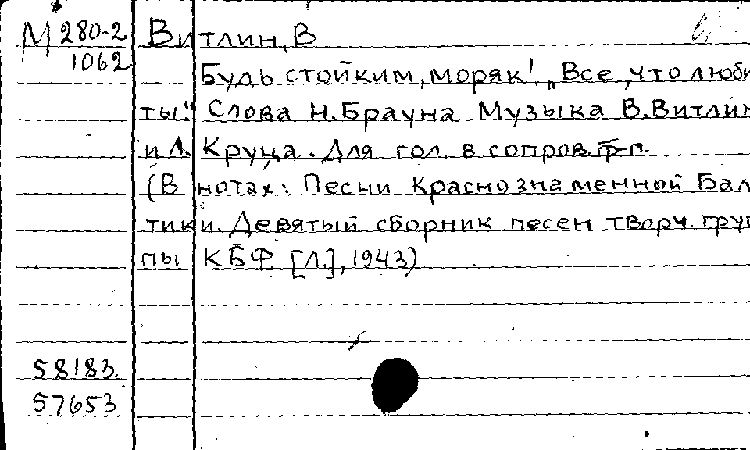 М 280-2 Витлин, В
1062
Будь стойким, моряк! „Все, что люби
ты." Слова Н. Брауна Музыка В. Витлин
и Л. Круца. Для гол. в сопров. ф-п.
(В нотах: Песни Краснознаменной Бал
тики. Девятый сборник песен творч. груп
пы КБФ [Л.], 1943)
58183.
57653